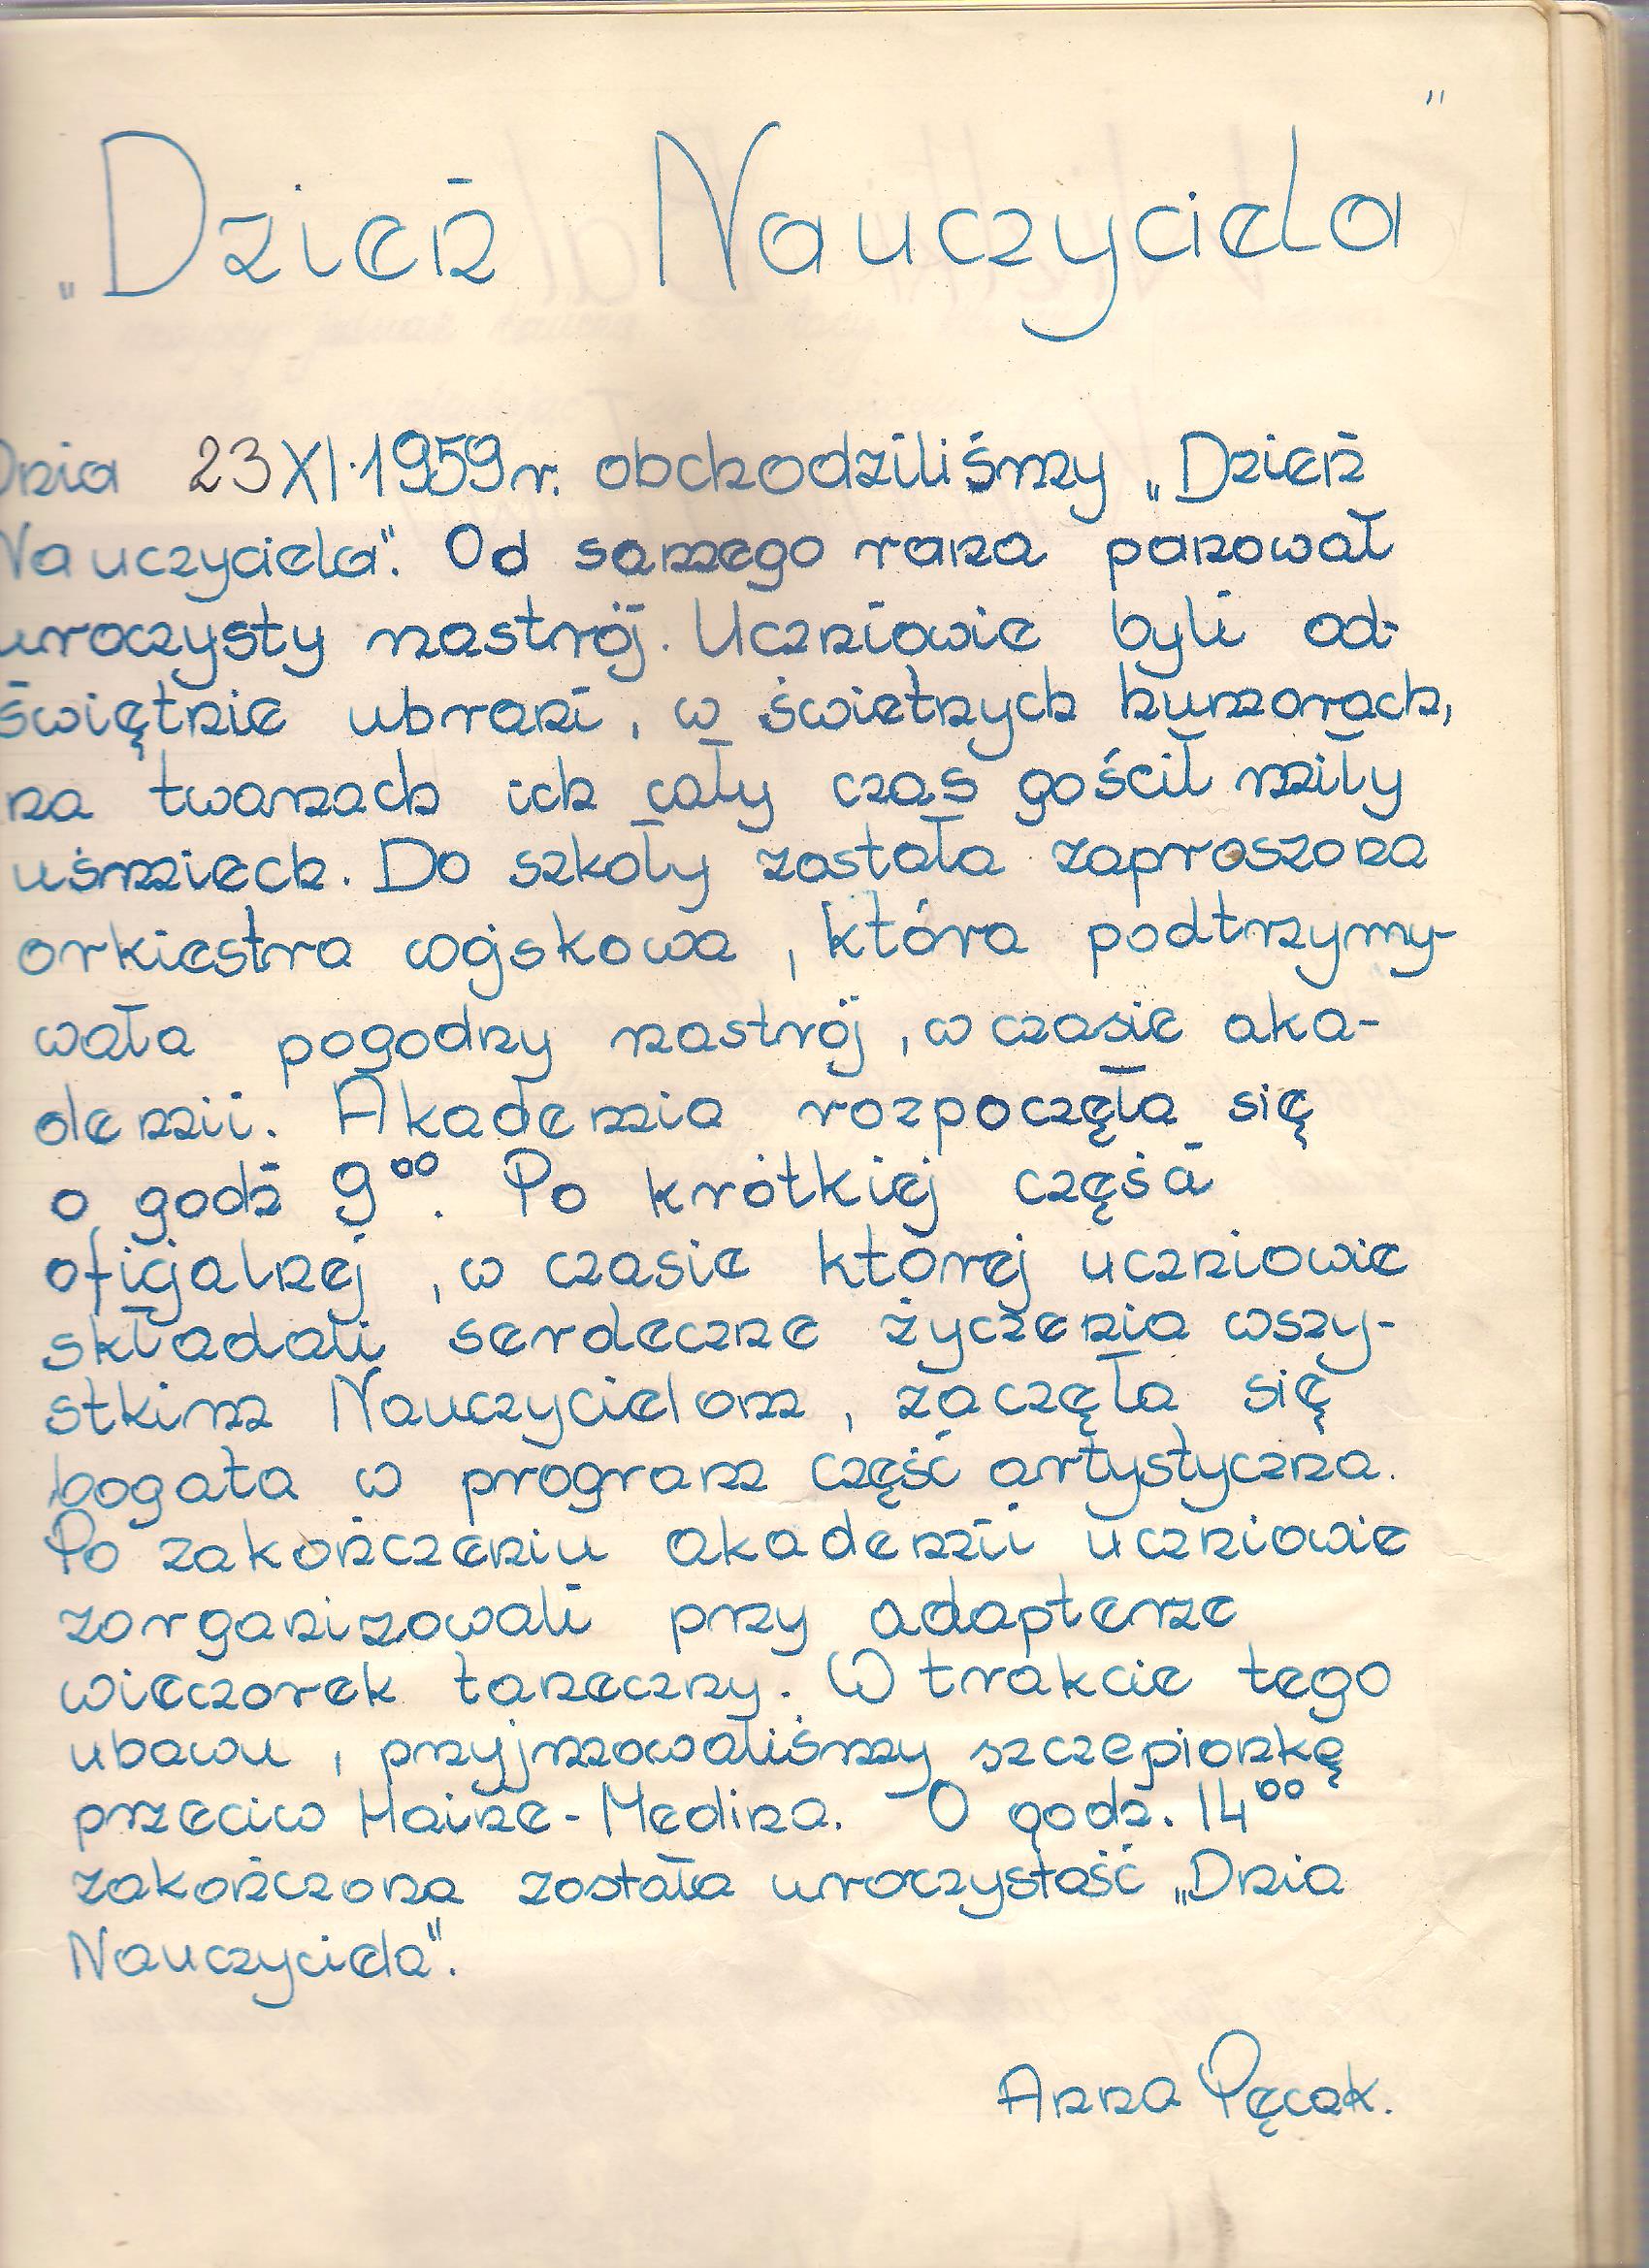 „Dzień Nauczyciela"
Dnia 23 XI.1959r. obchodziliśmy „Dzień
Nauczyciela". Od samego rana panował
uroczysty nastrój. Uczniowie byli od-
świętnie ubrani, w świetnych humorach,
na twarzach ich cały czas gościł miły
uśmiech. Do szkoły została zaproszona
orkiestra wojskowa, która podtrzymy-
wała pogodny nastrój, w czasie aka-
demii. Akademia rozpoczęła się
o godz 9⁰⁰. Po krótkiej części
oficjalnej, w czasie której uczniowie
składali serdeczne życzenia wszy-
stkim Nauczycielom, zaczęła się
bogata w program część artystyczna.
Po zakończeniu akademii uczniowie
zorganizowali przy adapterze
wieczorek taneczny. W trakcie tego
ubawu, przyjmowaliśmy szczepionkę
przeciw Haine-Medina. O godz. 14⁰⁰
zakończona została uroczystość „Dnia
Nauczyciela".
Anna Pęcak.